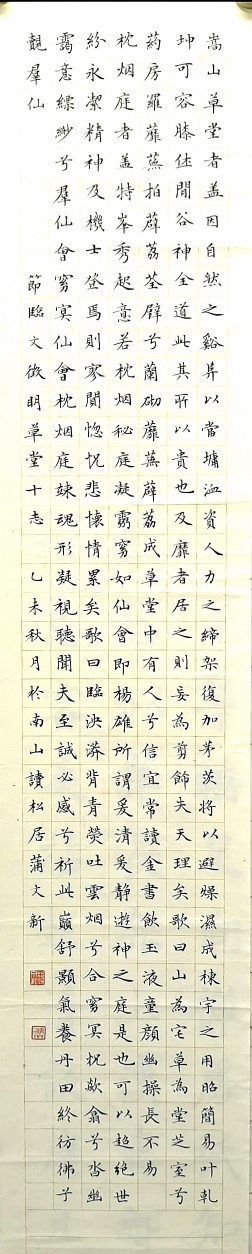 嵩山草堂者盖因自然之谿阜以當墉洫資人力之締架復加茅茨將以避燥濕成棟宇之用昭簡易叶乹
坤可容膝休閒谷神全道此其所以貴也及靡者居之則妄為剪飾失天理矣歌曰山為宅草為堂芝室兮
药房羅蘼蕪拍薜荔荃壁兮蘭砌蘼蕪薜荔成草堂中有人兮信宜常讀金書飲玉液童顏幽操長不易
枕烟庭者盖特峯秀起意若枕烟秘庭凝靄窅如仙會即楊雄所謂爰清爰静遊神之庭是也可以超絕世
紛永潔精神及機士登焉則寥闃惚怳悲懷情累矣歌曰臨泱漭背青熒吐雲烟兮合窅冥怳欻翕兮沓幽
靄意縹緲兮羣仙會窅冥仙會枕烟庭竦魂形凝視聽聞夫至誠必感兮祈此巔舒顥氣養丹田終彷彿兮
覿羣仙 節臨文徵明草堂十志 乙未秋月於南山讀松居蒲文新